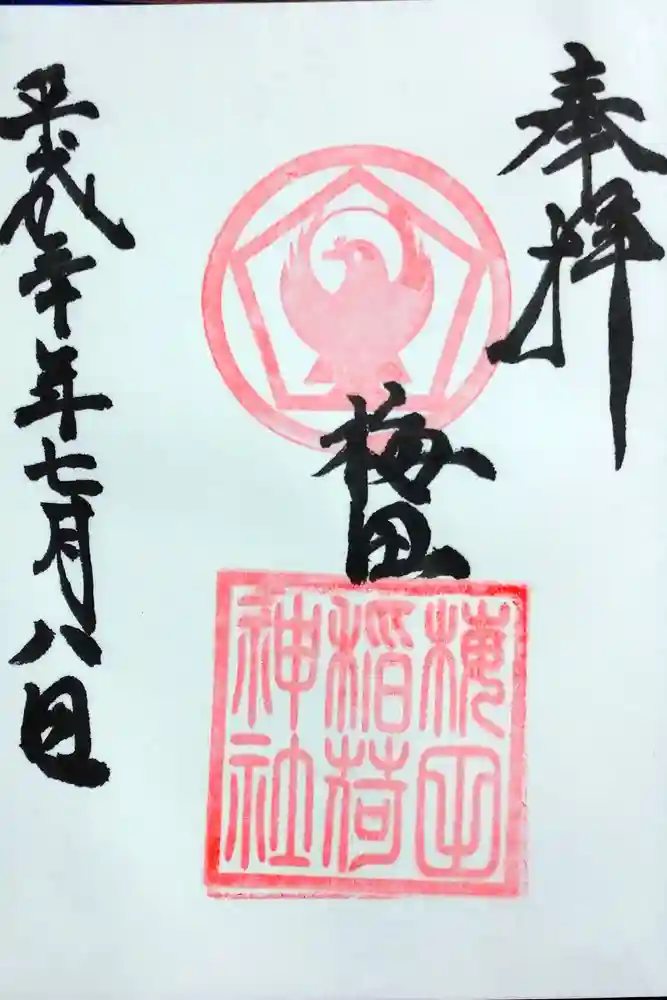 奉拝
梅田
梅田
稲荷
神社
平成三十年七月八日